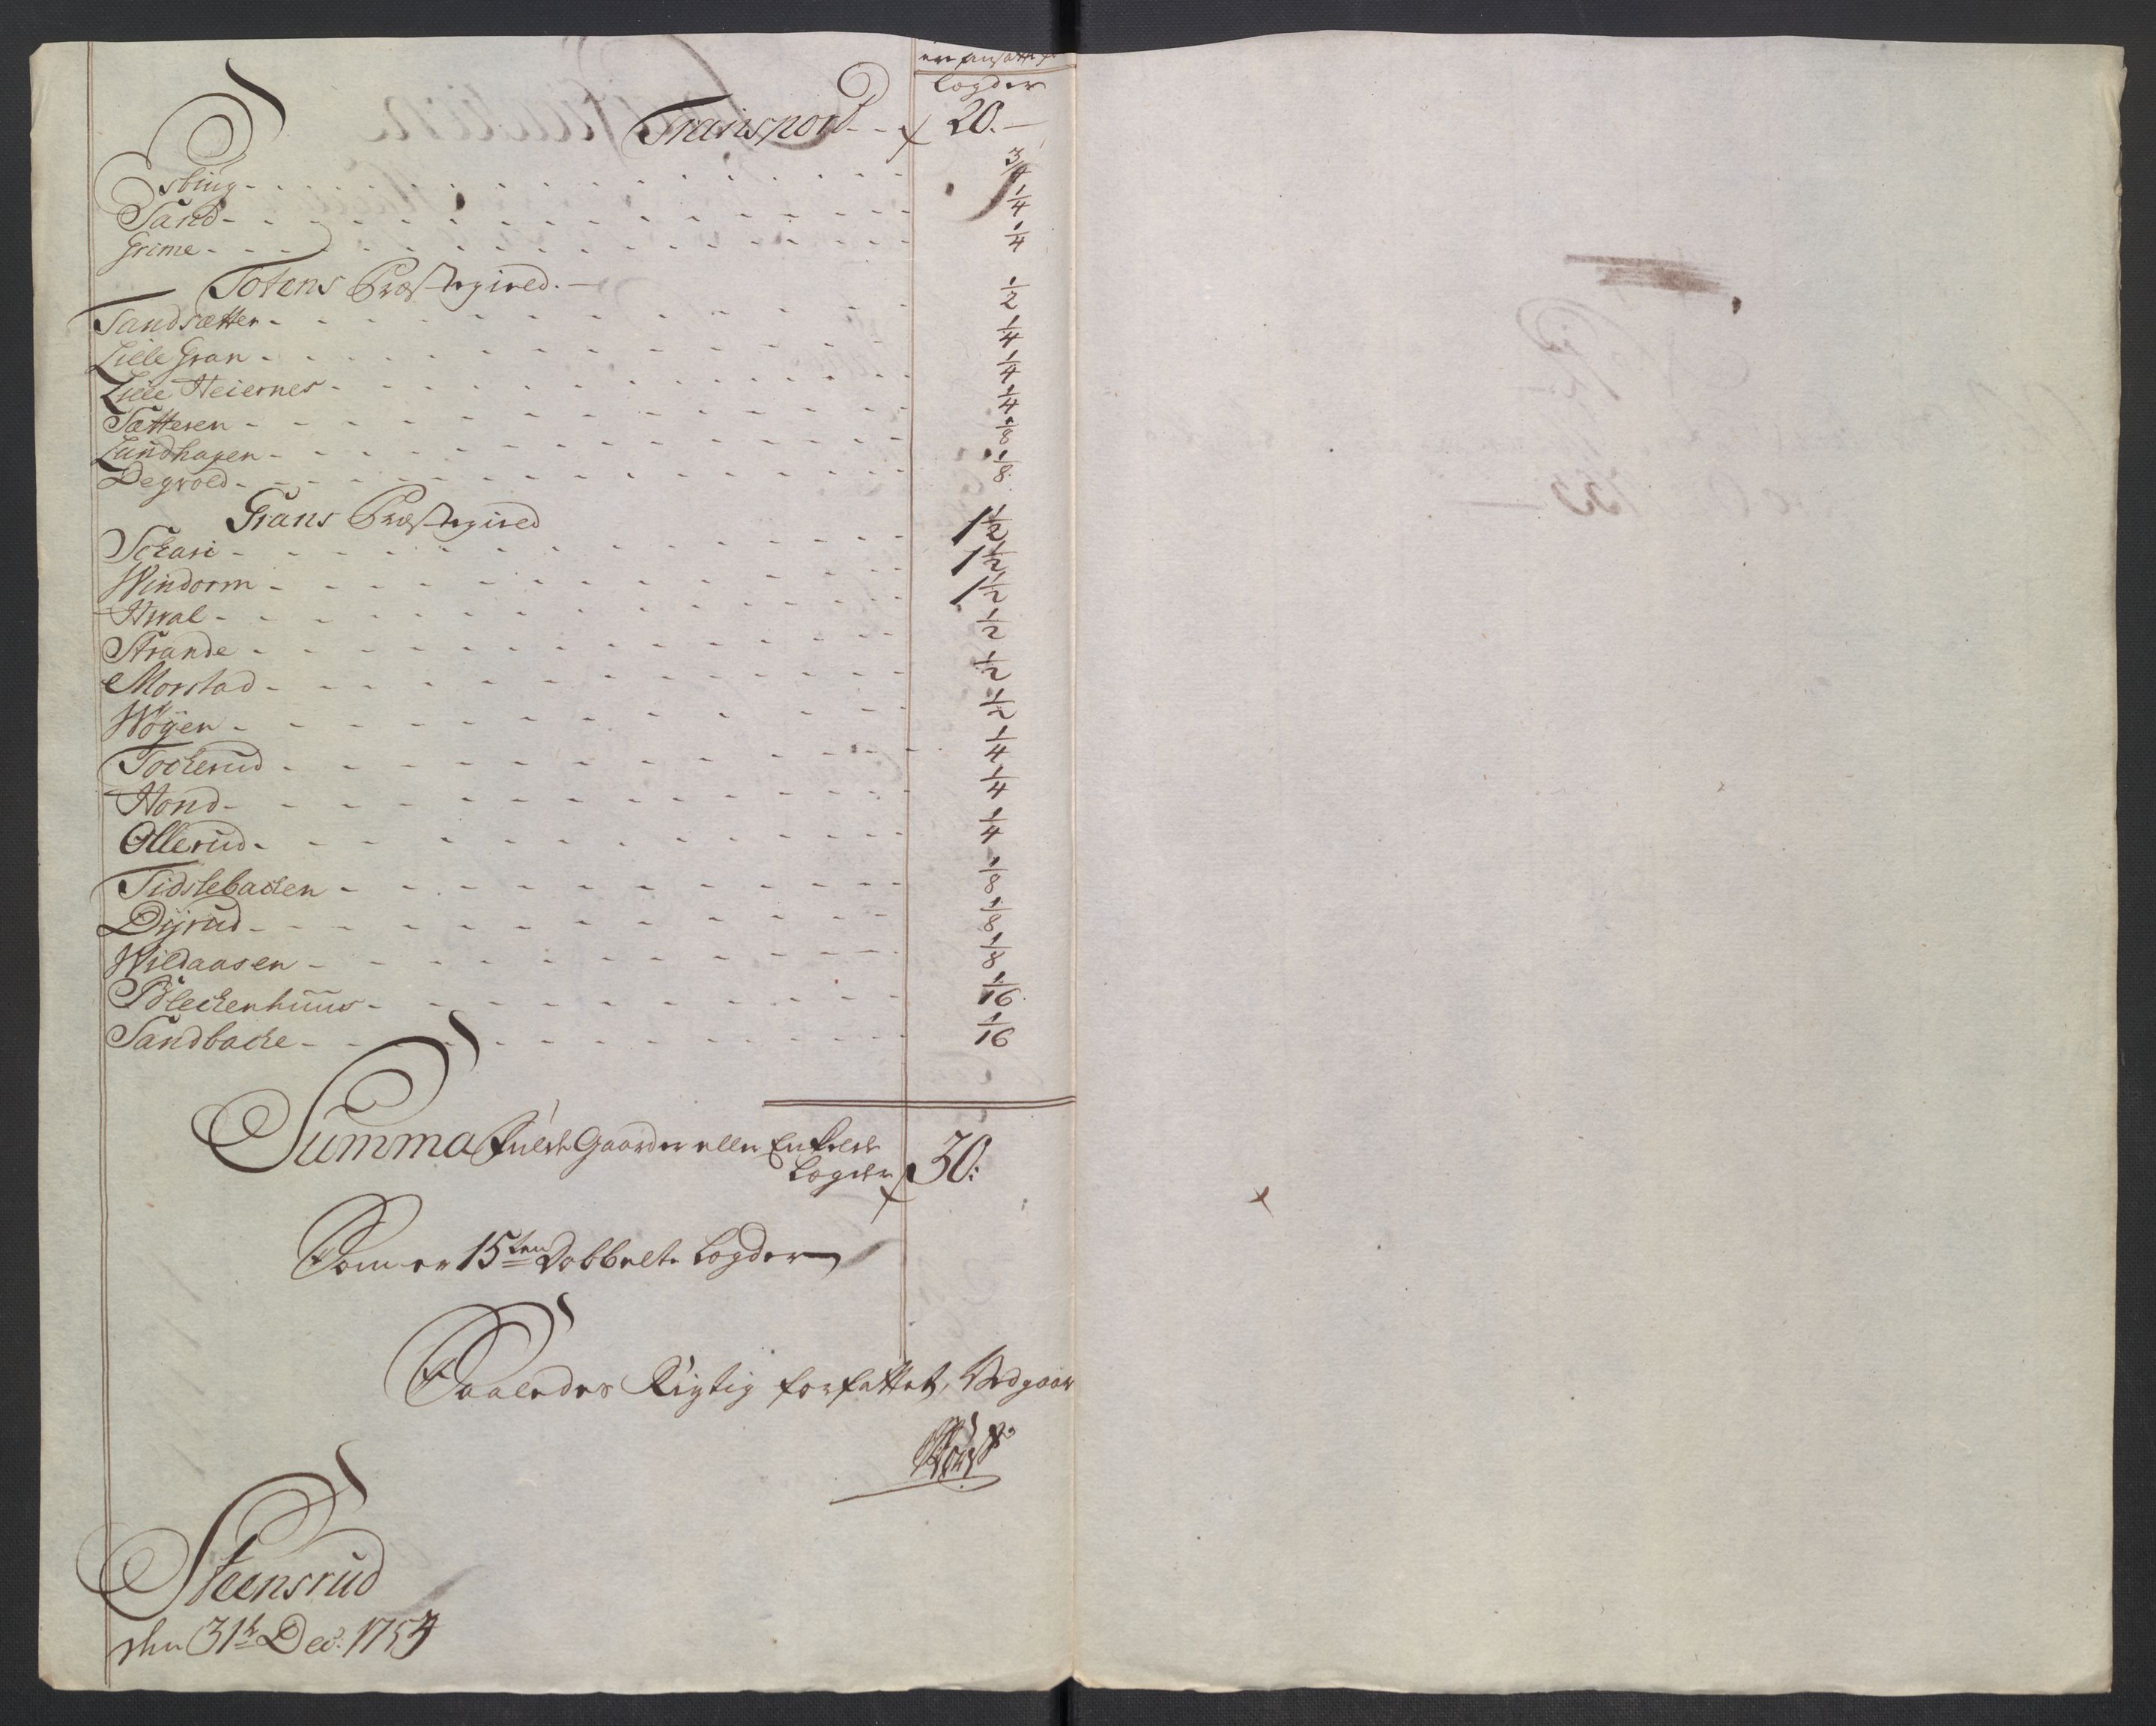 er ansatt f
Logder
Transport - - 20. —
Esbiug - 3/4
Sand - 1/4
Grime - 1/4
Totens Præstegield. —
Sandsætter - 1/2
Lille Gran - 1/4
Lille Heiernes - 1/4
Sætteren - 1/4
Lundhagen - 1/8
Degvold - 1/8
Grans Præstegield
Schari - 1 1/2
Windorm - 1 1/2
Hval - 1 1/2
Strande - 1/2
Morstad - 1/2
Wøÿen - 1/2
Tockerud - 1/4
Hond - 1/4
Ollerud - 1/4
Tidslebacken - 1/8
Dÿrud - 1/8
Wildaasen - 1/8
Bleckenhuus - 1/16
Sandbacke - 1/16
Summa Fulde Gaarder eller Enkelte
Logder 30:
Som er 15ten Dobbelte Logder
Saaledes Rigtig forfattet, Vedgaar
Steensrud
den 31te Dec: 1753